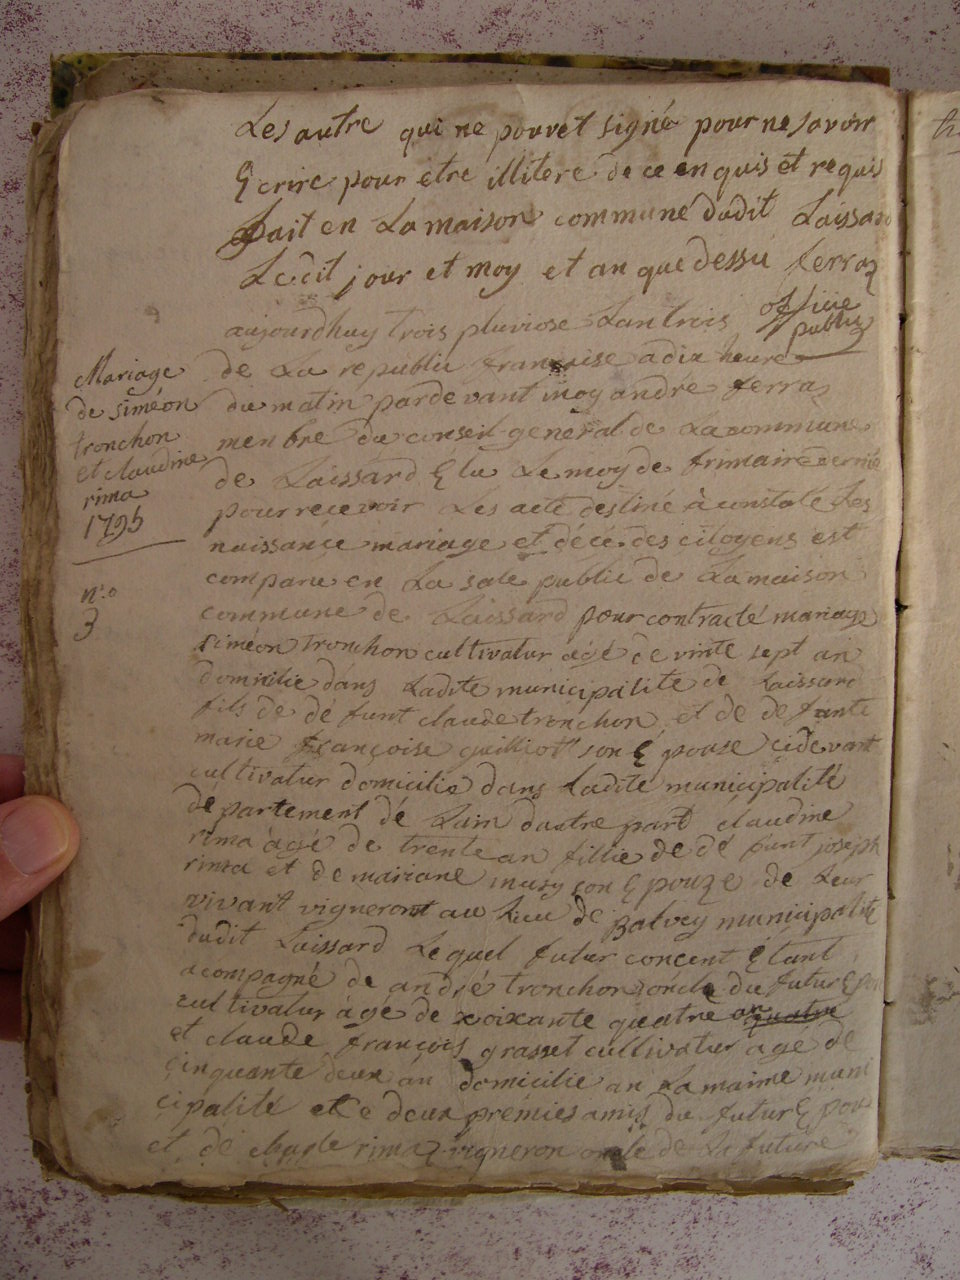 Les autre qui ne pouvet signé pour ne savoir
Ecrire pour etre illitere de ce enquis et requis
fait en La maison commune dudit Laissard
Ledit jour et moy et an que dessu ferraz
officie
public
aujourdhuy trois pluviose Lan trois
de La republic françoise a dix heure
du matin pardevant moy andré ferraz
menbre du conseil general de La commune
de Laissard Elu Le moy de frimaire dernié
pour recevoir Les acte destiné à constaté Les
naissance mariage et décé des citoyens est
comparu en La sale public de La maison
commune de Laissard pour contracté mariage
siméon tronchon cultivatur agé de vinte sept an
domicilie dans Ladite municipalite de Laissard
fils de defunt claude tronchon et de defunte
marie françoise guilliot son Epouse cidevant
cultivatur domicilie dans Ladite municipalité
département dé Lain dautre part claudine
rima àgé de trente an fillie de dé funt joseph
rima et de mariane musy son Epouze de Leur
vivant vigneront au Lieu de Balvey municipalité
dudit Laissard Lequel futur concent Etant
acompagné de andré tronchon oncle du futur Epou
cultivatur àgé de xoixante quatre an quatre
et claude françois grasset cultivatur agé de
cinquante deux an domicilie an La maime muni
cipalité et ce deux premies amis du futur Epou
et de rimaz vigneron oncle de La future
Mariage
de siméon
tronchon
et claudine
rima
1795
n.o
3